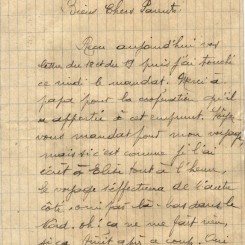 Biens Chers Parents,
Reçu aujourd'hui vos
lettres du 18 et du 19 puis j'ai touché
ce midi le mandat. Merci à
papa pour la coopération qu'il
a apportée à cet emprunt.
vous mandat pour mon voyage
mais si c'est comme je l'ai
écrit à Elise tout à l'heure
le voyage s'effectuera de l'autre
côté, oui par là-bas dans le
Nord, oh! ça ne me fait rien,
si ça à coup. Oui